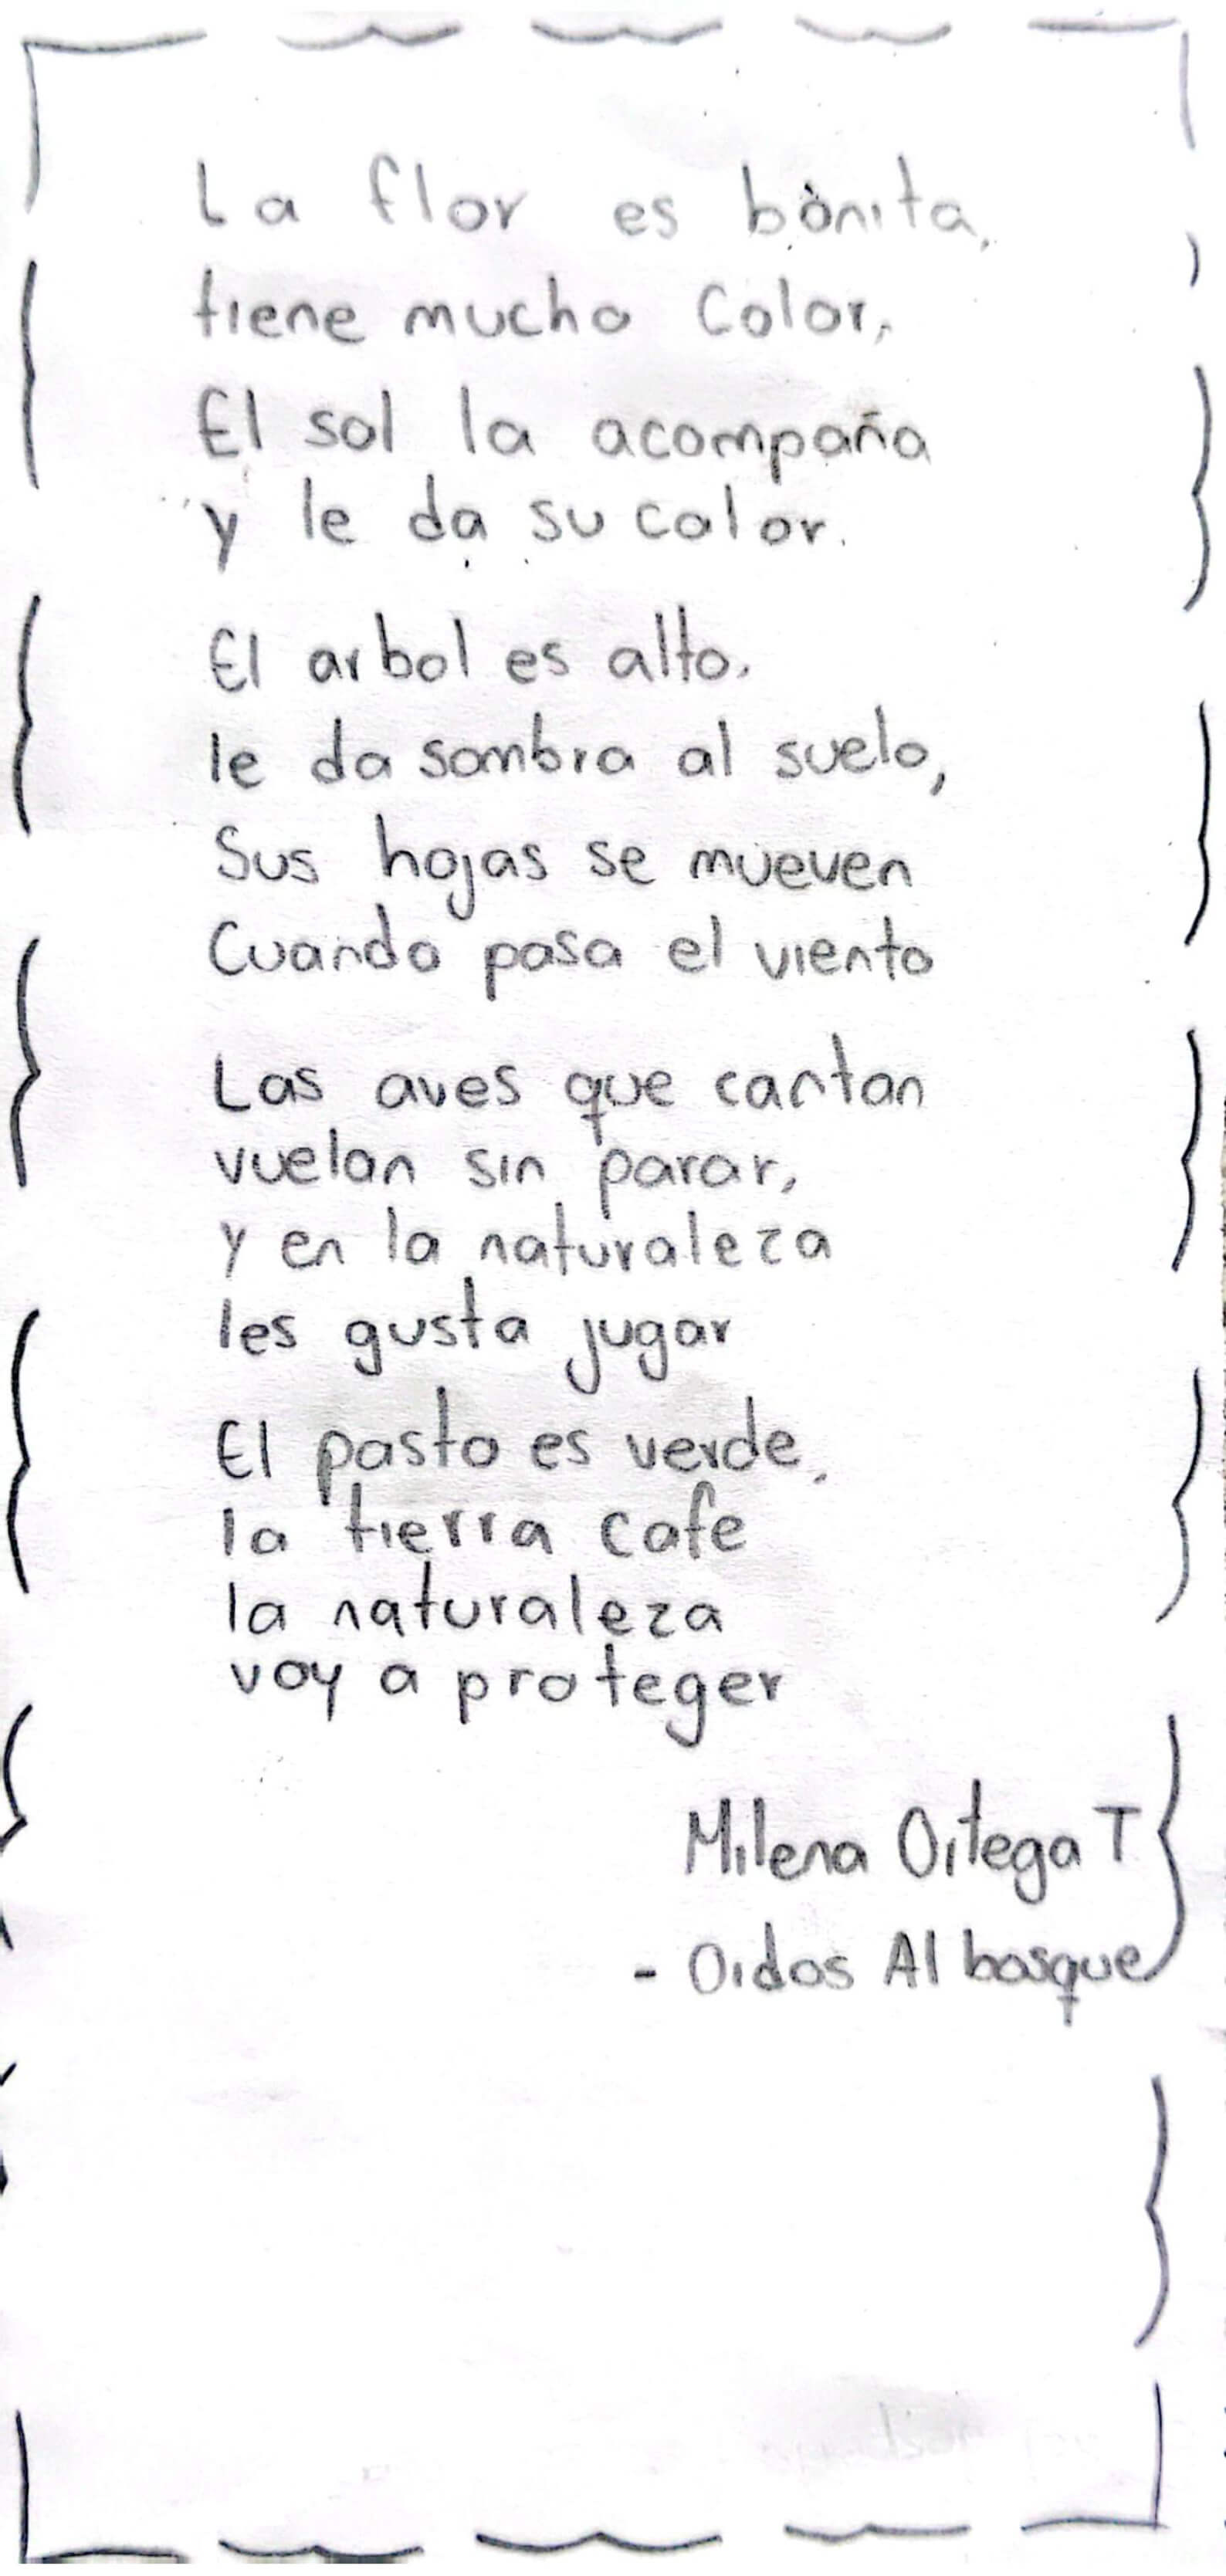 La flor es bonita,
tiene mucho Color,
El sol la acompaña
y le da su calor.
El arbol es alto.
le da sombra al suelo,
Sus hojas se mueven
Cuando pasa el viento
Las aves que cantan
vuelan sin parar,
y en la naturaleza
les gusta jugar
El pasto es verde,
la tierra cafe
la naturaleza
voy a proteger
Milena Ortega T
- Oidos Al bosque